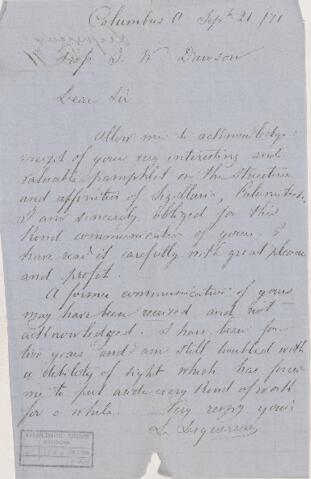 Columbus O Sept. 21 /71
Prof. J. W. Dawson
Dear Sir.
Allow me to acknowledge
receipt of your very interesting and
valuable pamphlet on the Structure
and affinities of Sigillaria, Calamites,
I am sincerely obliged for this
kind communication of yours. I
have read it carefully with great pleasure
and profit.
A former communication of yours
may have been received and not
acknowledged. I have been for
two years and am still troubled with
a debility of sight which has forced
me to put aside every kind of work
for a while.
Very respy yours
L. Lesquereux